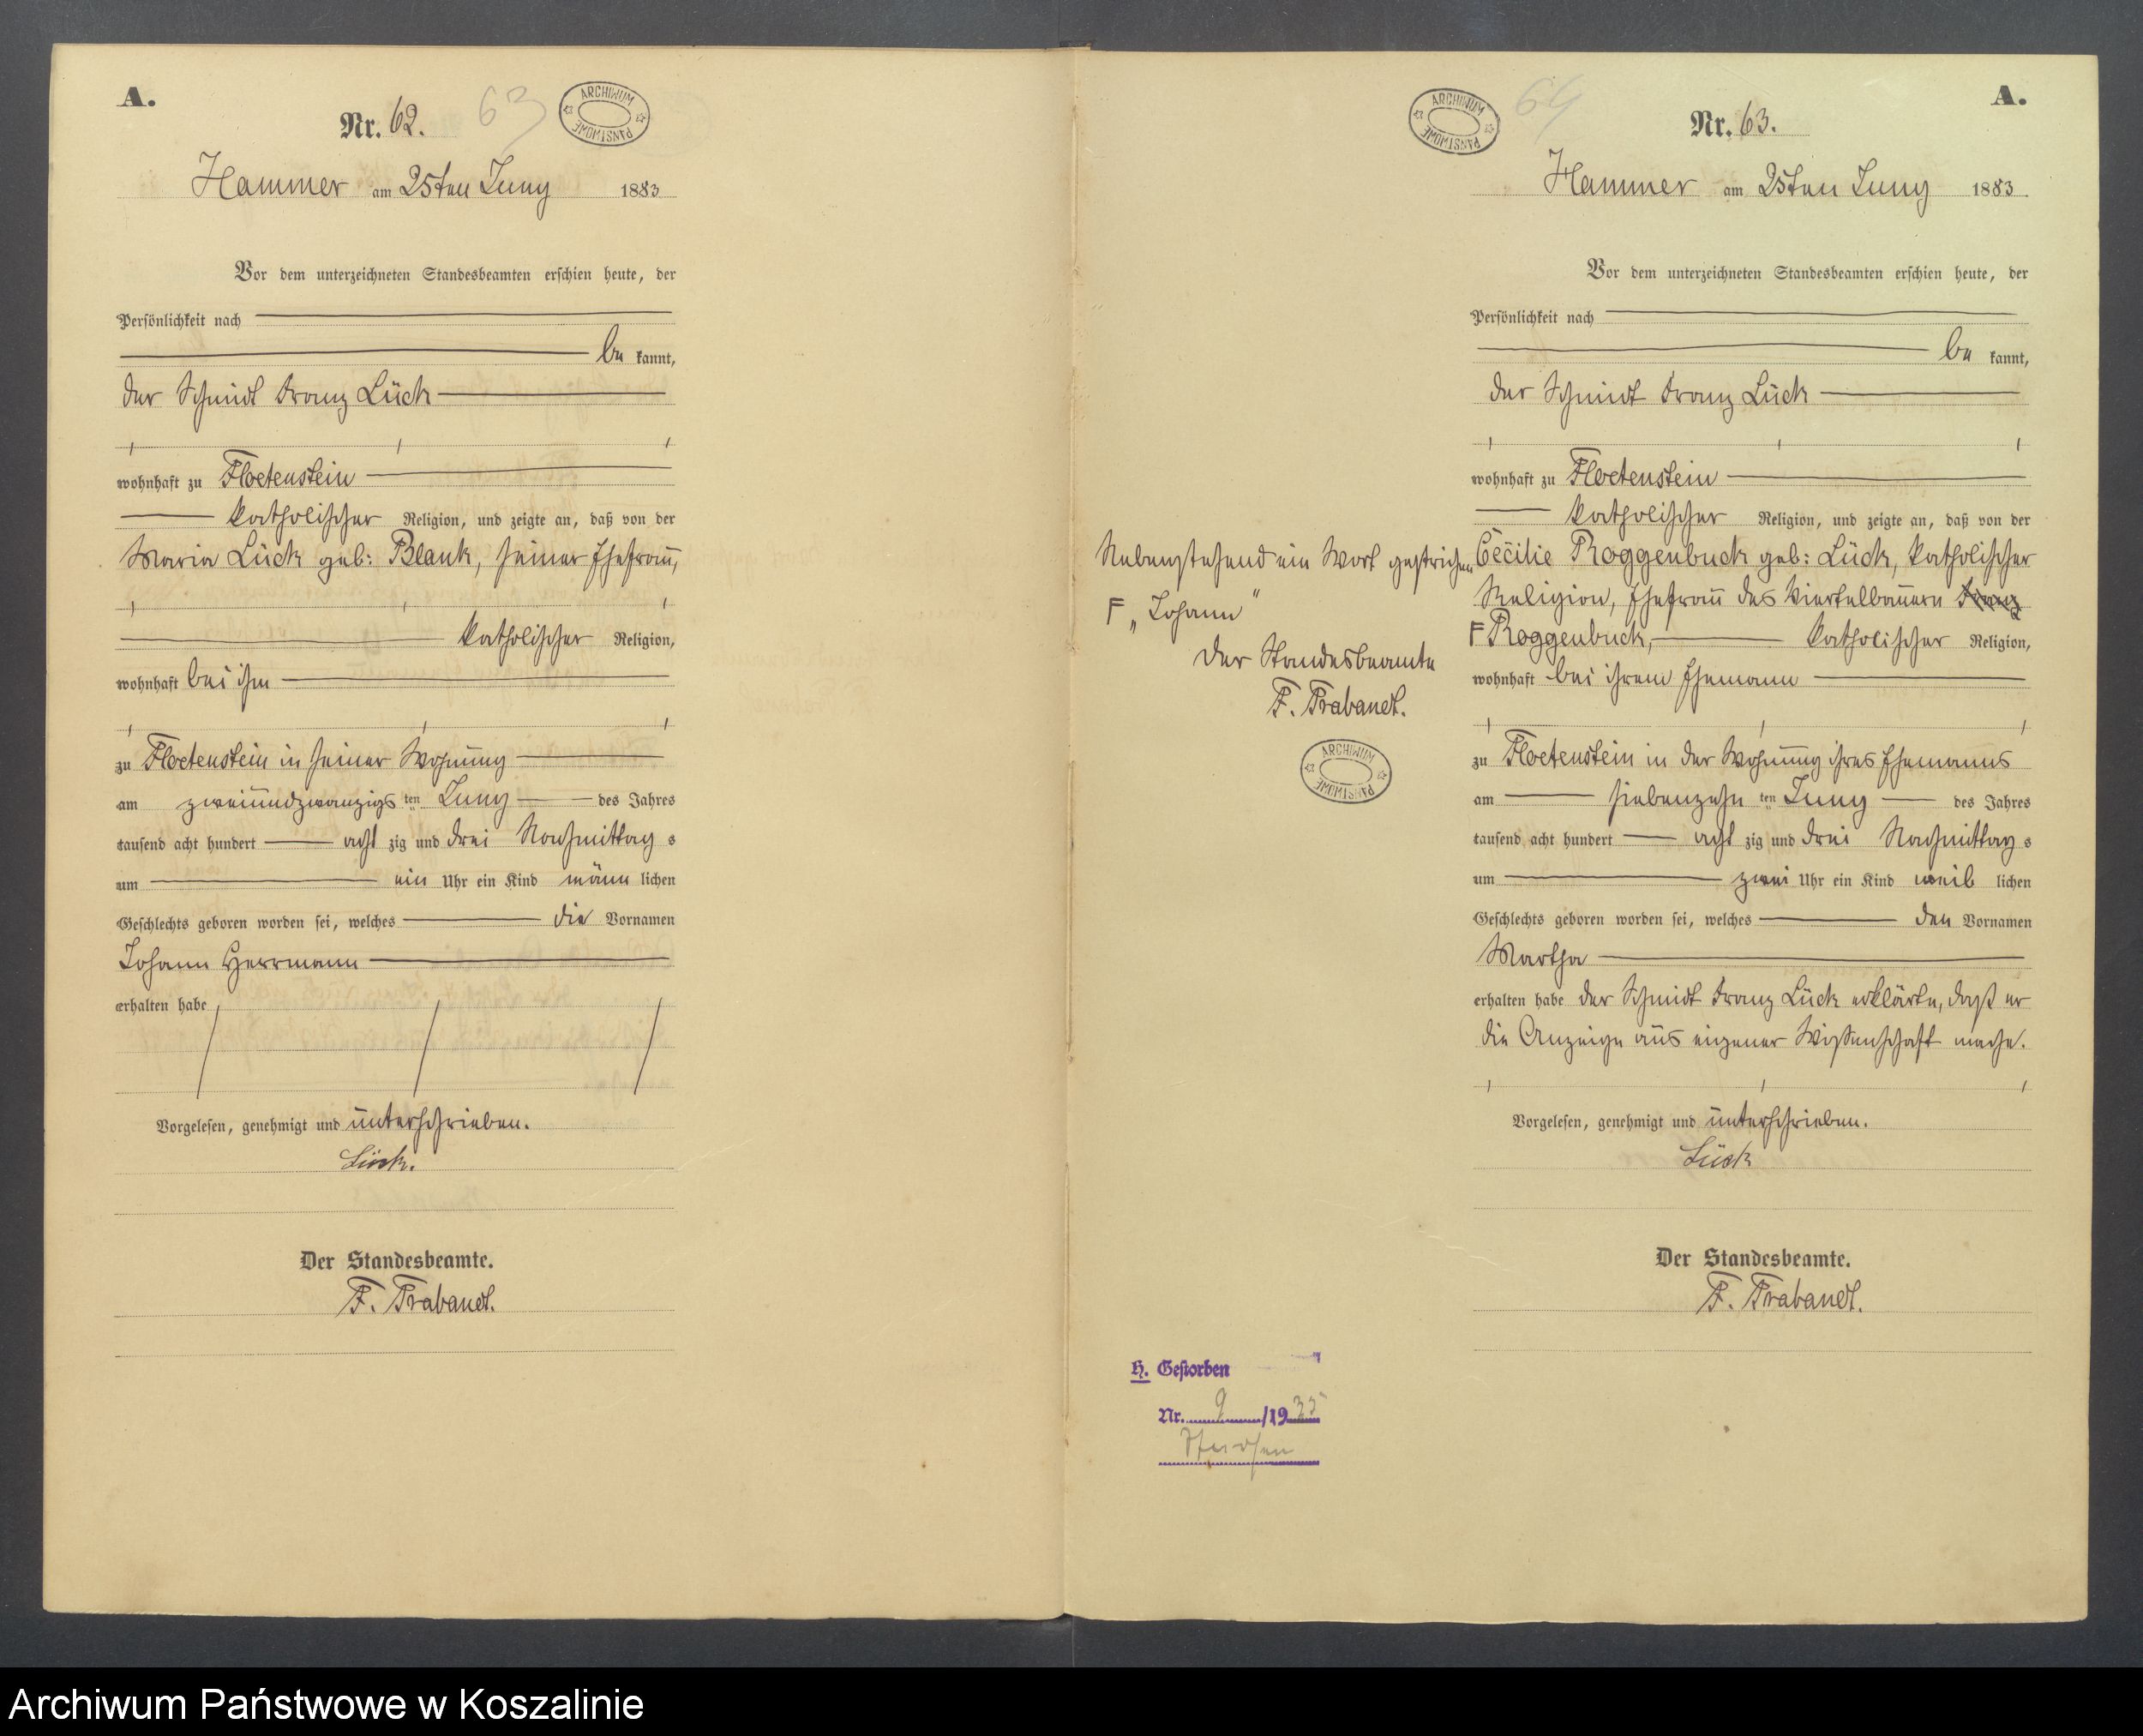 A.
Nr. 62.
63
ARCHIWUM PAŃSTWOWE
Hammer am 25ten Juny 1883
Vor dem unterzeichneten Standesbeamten erschien heute, der
Persönlichkeit nach
be kannt,
der Schmidt Franz Lück
wohnhaft zu Floetenstein
katholischer Religion, und zeigte an, daß von der
Maria Lück geb: Blank, seiner Ehefrau,
katholischer Religion,
wohnhaft bei ihm
zu Floetenstein in seiner Wohnung
am zweiundzwanzigs ten Juny des Jahres
tausend acht hundert acht zig und drei Nachmittag s
um ein Uhr ein Kind männ lichen
Geschlechts geboren worden sei, welches die Vornamen
Johann Herrmann
erhalten habe
Vorgelesen, genehmigt und unterschrieben.
Lück.
Der Standesbeamte.
F. Trabandt.
A.
ARCHIWUM PAŃSTWOWE
64
Nr. 63.
Hammer am 25ten Juny 1883
Vor dem unterzeichneten Standesbeamten erschien heute, der
Persönlichkeit nach
be kannt,
der Schmidt Franz Lück
wohnhaft zu Floetenstein
katholischer Religion, und zeigte an, daß von der
Cècilie Roggenbuck geb: Lück, katholischer
Religion, Ehefrau des Viertelbauern Franz
F Roggenbuck, katholischer Religion,
wohnhaft bei ihrem Ehemann
zu Floetenstein in der Wohnung ihres Ehemanns
am siebenzehn ten Juny des Jahres
tausend acht hundert acht zig und drei Nachmittag s
um zwei Uhr ein Kind weib lichen
Geschlechts geboren worden sei, welches den Vornamen
Martha
erhalten habe der Schmidt Franz Lück erklärte, daß er
die Anzeige aus eigener Wissenschaft mache.
Vorgelesen, genehmigt und unterschrieben.
Lück
Der Standesbeamte.
F. Trabandt.
Nebenstehend ein Wort gestrichen
F „Johann"
Der Standesbeamte
F. Trabandt.
ARCHIWUM PAŃSTWOWE
H. Gestorben
Nr. 9 /1935
Archiwum Państwowe w Koszalinie